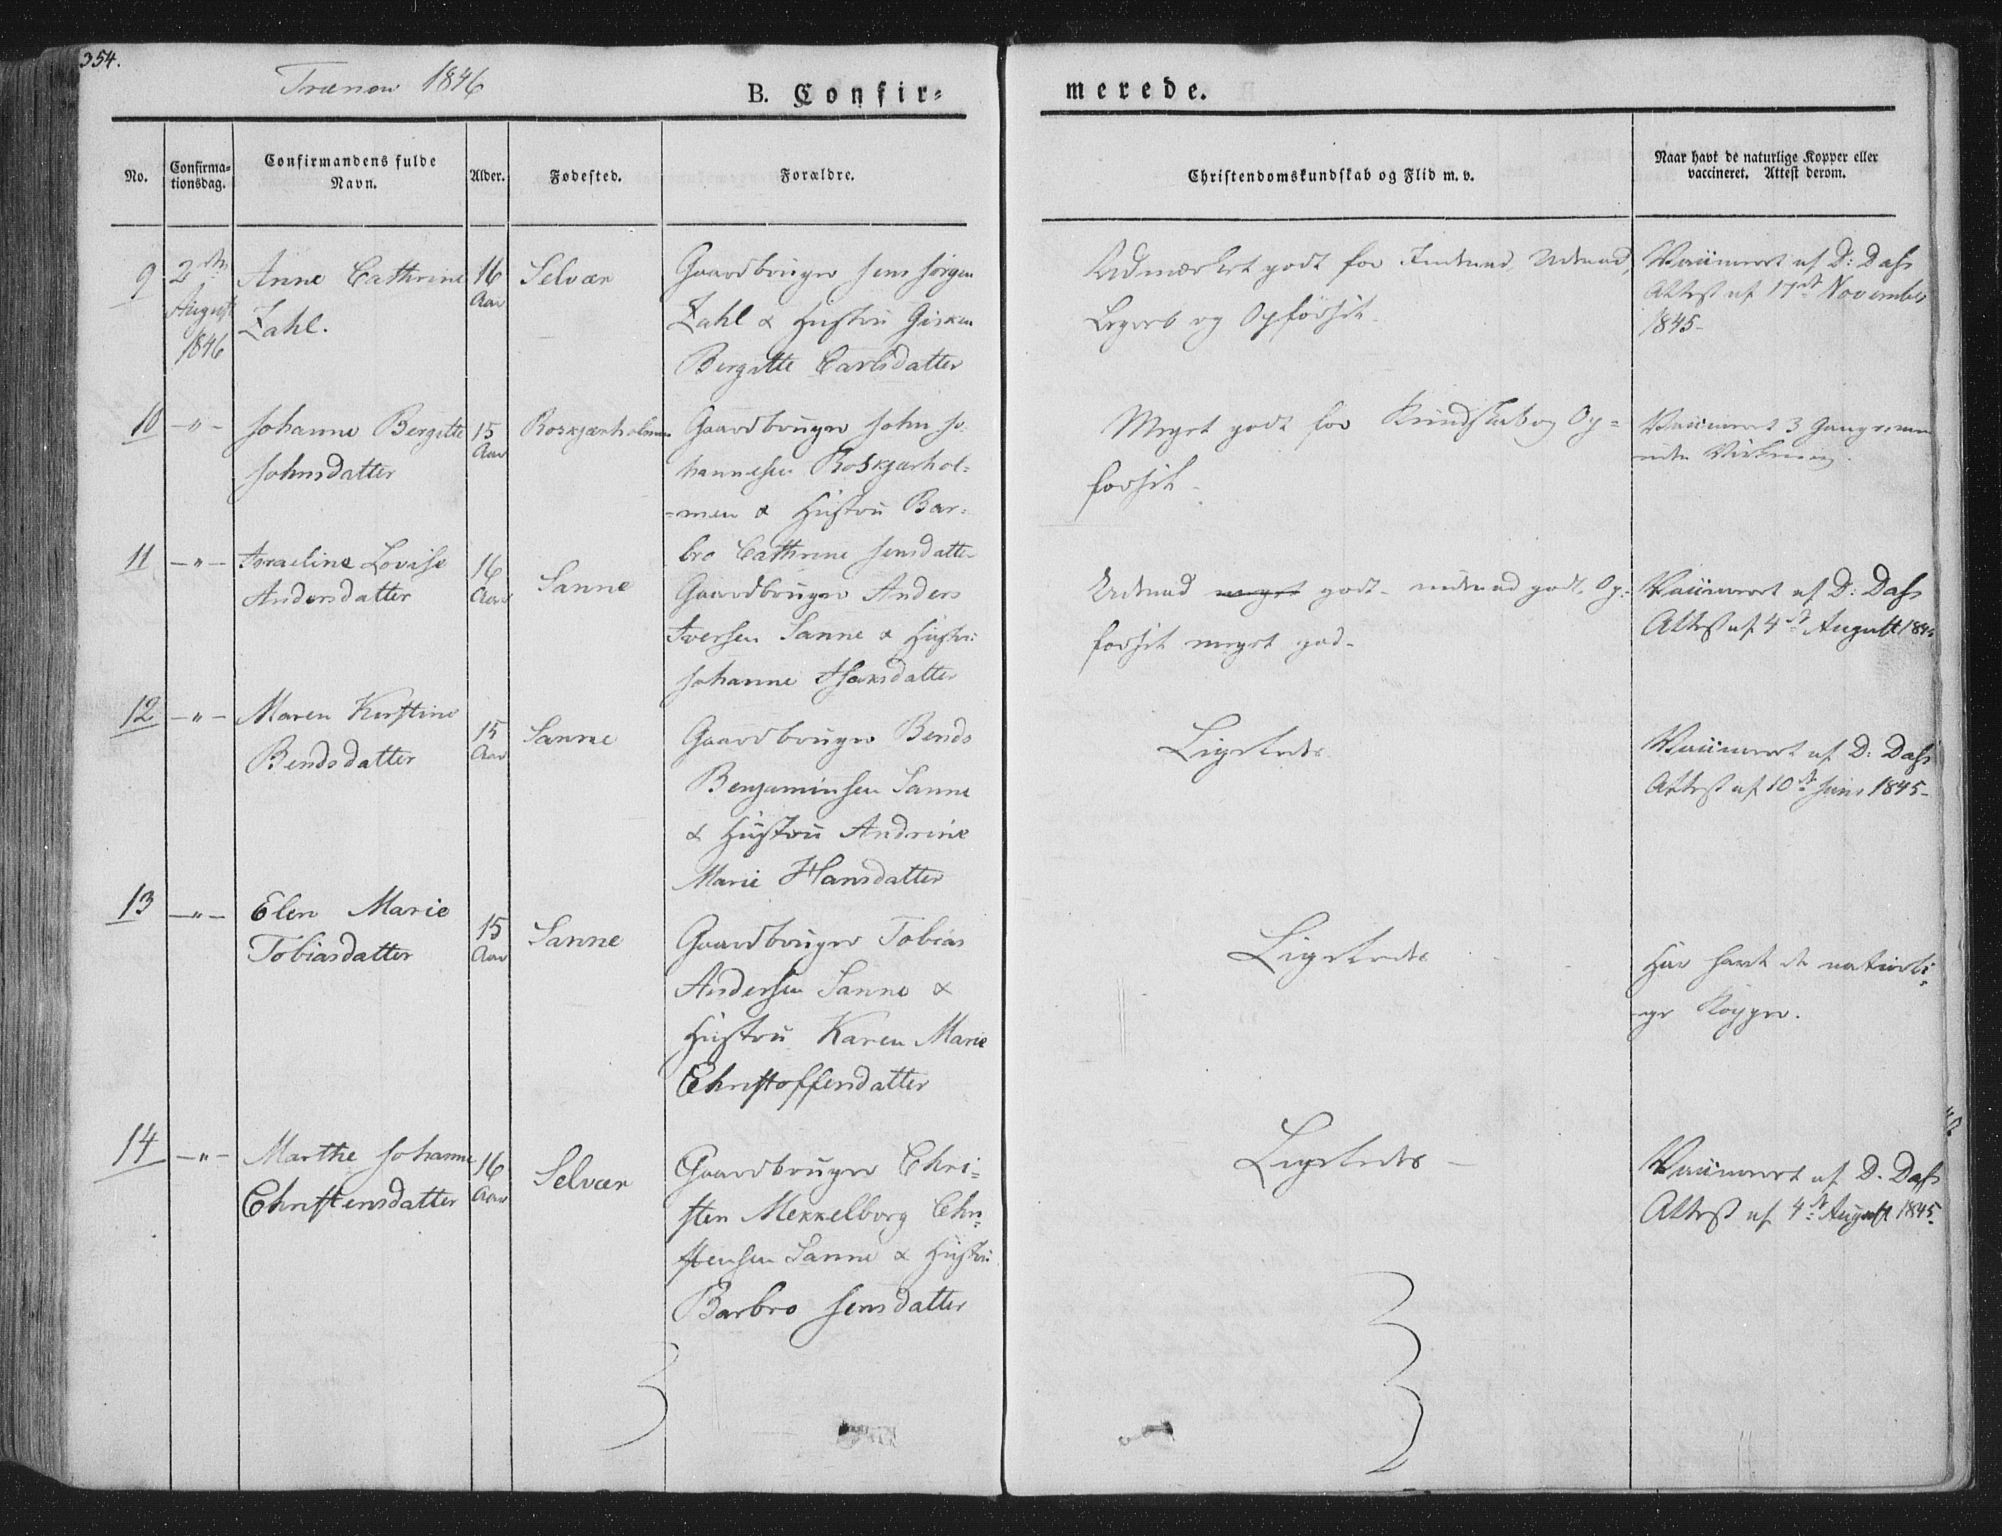 354.
Trænen 1846
B. Confir-
merede.
No.
Confirma-
tionsdag.
Confirmandens fulde
Navn.
Alder.
Fødested.
Forældre.
Christendomskundskab og Flid m. v.
Naar havt de naturlige Kopper eller
vaccineret. Attest derom.
9
2den
August
1846
Anne Cathrine
Zahl.
16
Aar
Selvær
Gaardbruger Jens Jørgen
Zahl & Hustru Gisken
Bergitte Carlsdatter
Udmærket godt for Indenad, Udenad,
Begreb og Opførsel.
Vaccineret af D: Dahs
Attest af 17de November
1845-
10
-"-
Johanne Bergitte
Johnsdatter
15
Aar
Roskjærholmen
Gaardbruger John Jo-
hannesen Roskjærhol-
-men & Hustru Bar-
bro Cathrine Jensdatter
Meget godt for Kundskab og Op-
førsel -
Vaccineret 3 Gange uden
Virkning.
11
-"-
Israeline Lovise
Andersdatter
16
Aar
Sanne
Gaardbruger Anders
Iversen Sanne & Hustru
Johanne Isaksdatter
Udenad meget godt - indenad godt, Op-
førsel meget god-
Vaccineret af D: Dahs
Attest af 4de August 1845
12
-"-
Maren Kirstine
Bendsdatter
15
Aar
Sanne
Gaardbruger Bends
Benjaminsen Sanne
& Hustru Andrine
Marie Hansdatter
Ligeledes
Vaccineret af D: Dahs
Attest af 10de Juni 1845-
13
-"-
Elen Marie
Tobiasdatter
15
Aar
Sanne
Gaardbruger Tobias
Andersen Sanne &
Hustru Karen Marie
Christoffersdatter
Ligeledes
Har havt de naturli-
ge Kopper.
14
-"-
Marthe Johanne
Christensdatter
16
Aar
Selvær
Gaardbruger Chri-
sten Mekkelborg Chri-
stensen Sanne & Hustru
Barbro Jensdatter
Ligeledes -
Vaccineret af D. Dahs
Attest af 4de August 1845-